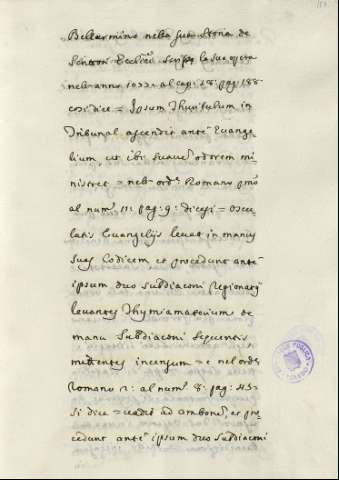 Bellarminio nella sua Storia de
Scrittori Eccl.ci scrisse la sua opera
nell'anno 1022 al cap: 28: pag: 188
così dice = Ipsum Thuribulum in
Tribunal ascendit ante Evange-
lium, ut ibi suave odorem mi-
nistret = nell'ord.e Romano p.mo
al num.o 11: pag: 9: dicesi = oscu-
latis Evangelijs levat in manus
suas Codicem et procedunt ante
ipsum duo subdiaconi Regionarij
levantes Thymiamaterium de
manu Subdiaconi sequentis
mittentes incensum = e nel ord.e
Romano 2: al num.o 8: pag: 45:
si dice = vadit ad ambonem, et pro
cedunt ante ipsum duo subdiaconi